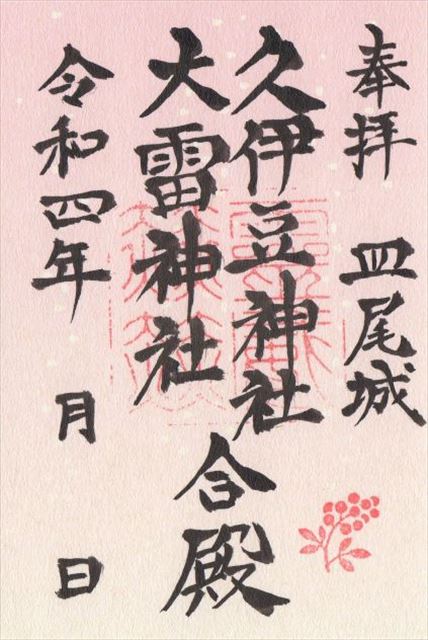 奉拝 皿尾城
久伊豆神社
大雷神社
合殿
令和四年 月 日